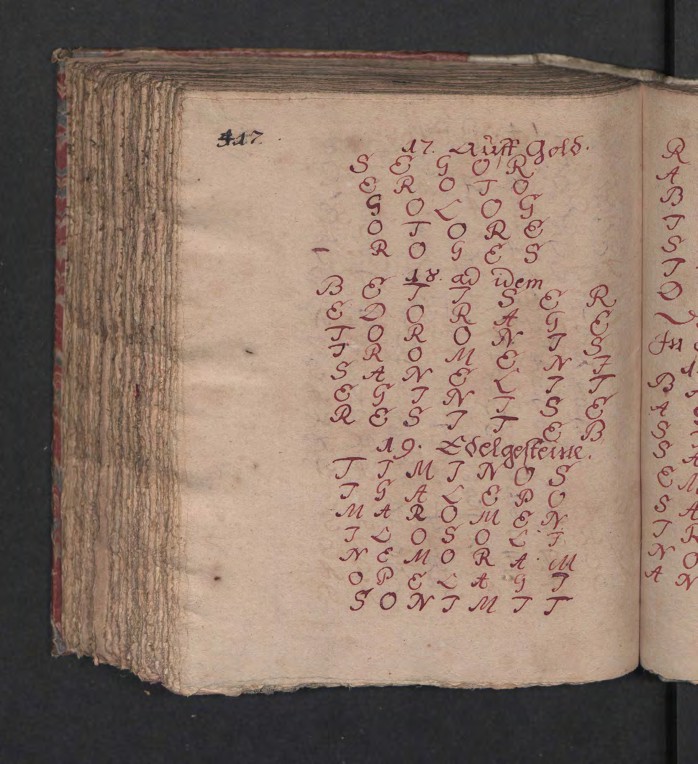 417
17. Auff Gold.
S E G O R
E R O T O
G O L O G
O T O R E
R O G E S
18. ad idem
B E T I S E R
E D O R A G E
T O R O N I S
I R O M E N I
S A N E L I T
E G I N I S E
R E S I T E B
19. Edelgesteine.
T I M I N O S
I G A L E P O
M A R O M E N
I L O S O L I
N E M O R A M
O P E L A G I
S O N I M I T
R
A
B
I
S
I
O
L
In
B A
A
S
S
E M
S A
I R
N O
A N